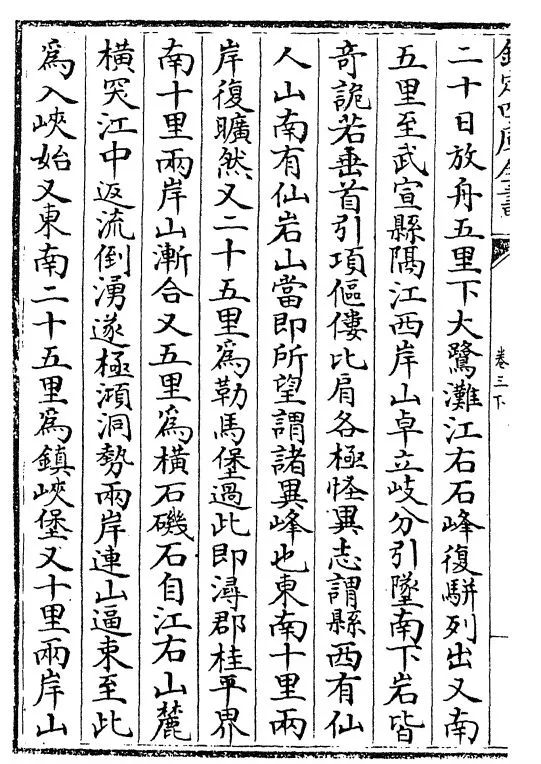 欽定四庫全書
卷三下
二十日放舟五里下大鷺灘江右石峰復駢列出又南
五里至武宣縣隔江西岸山卓立岐分引墜南下岩皆
奇詭若垂首引項傴僂比肩各極怪異志謂縣西有仙
人山南有仙岩山當即所望謂諸異峰也東南十里兩
岸復曠然又二十五里為勒馬堡過此即潯郡桂平界
南十里兩岸山漸合又五里為橫石磯石自江右山麓
橫突江中返流倒湧遂極澒洞勢兩岸連山逼束至此
為入峽始又東南二十五里為鎮峽堡又十里兩岸山